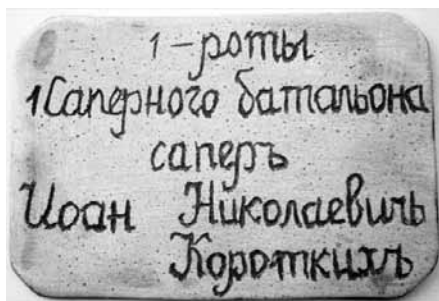 1-роты
1 Саперного батальона
саперъ
Иоан Николаевичь
Короткихъ